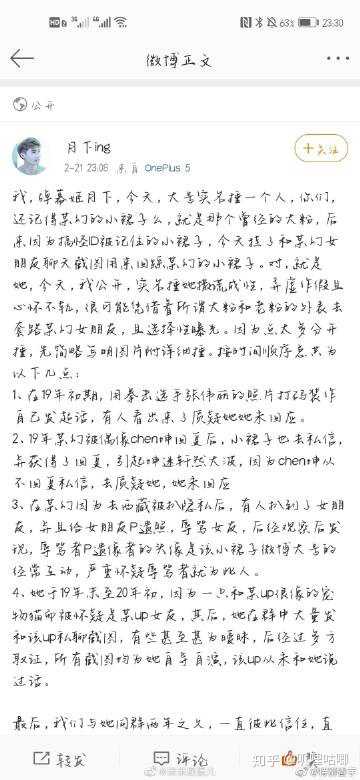 63% 23:30
微博正文
公开
月下ing
2-21 23:06 来自 OnePlus 5
+关注
我,碎慕姬月下,今天,大号实名捶一个人,你们,
还记得某幻的小裙子么,就是那个曾经的大粉,后
来因为搞怪ID被记住的小裙子,今天挂了和某幻女
朋友聊天截图用来回踩某幻的小裙子。对,就是
她,今天,我公开,实名捶她撒谎成性,弄虚作假且
心怀不轨,很可能凭借着所谓大粉和老粉的外表去
套路某幻女朋友,且选择性曝光。因为点太多分开
捶,先简略写明图片附详细捶。按时间顺序总共为
以下几点:
1、在19年初期,用拳击选手张伟丽的照片打码装作
自己发超话,有人看出来了质疑她她未回应。
2、19年某幻被偶像chen坤回复后,小裙子也去私信,
并获得了回复,引起坤迷轩然大波,因为chen坤从
不回复私信,去质疑她,她未回应
3、在某幻因为去西藏被扒隐私后,有人扒到了女朋
友,并且给女朋友P遗照,辱骂女友,后经观察后发
现,辱骂者P遗像者的头像是该小裙子微博大号的
经常互动,严重怀疑辱骂者就为此人。
4、她于19年末至20年初,因为一只和某up很像的宠
物猫而被怀疑是某up女友,其后,她在群中大量发
和该up私聊截图,有些甚至甚为暧昧,后经过多方
取证,所有截图均为她自导自演,该up从未和她说
过话。
最后,我们与她同群两年之久,一直彼此信任,直
转发 评论